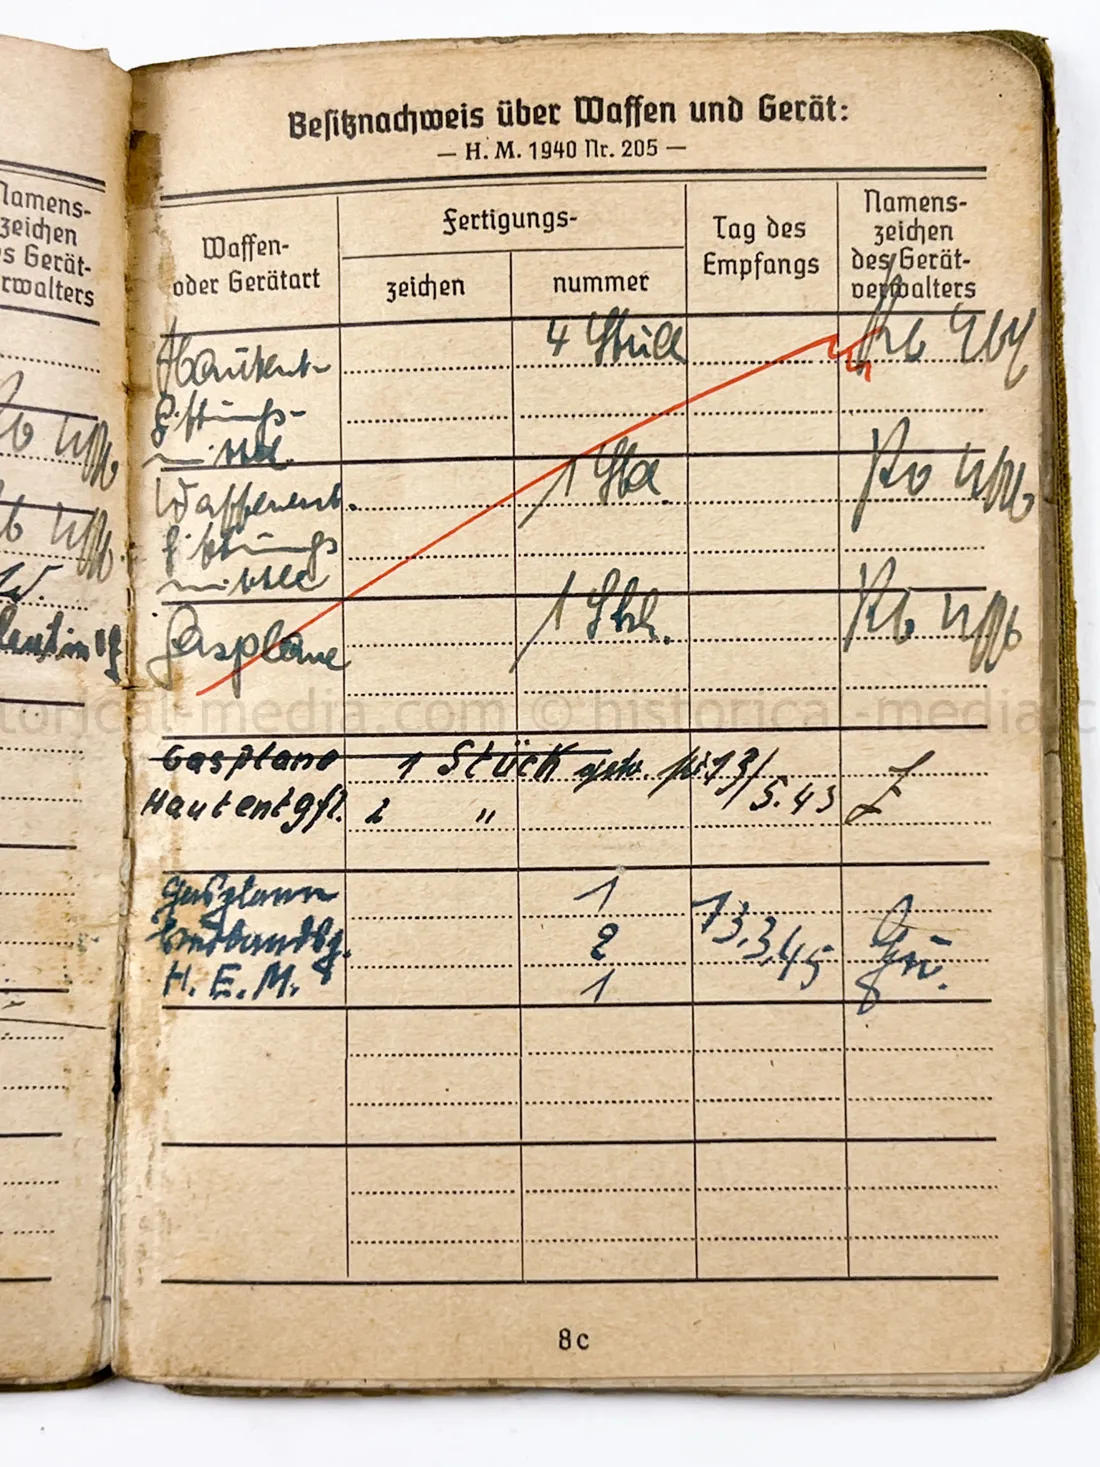 Besitznachweis über Waffen und Gerät:
— H. M. 1940 Nr. 205 —
Namens-
zeichen
s Gerät-
rwalters
Waffen-
oder Gerätart
Fertigungs-
zeichen
nummer
Tag des
Empfangs
Namens-
zeichen
des Gerät-
verwalters
Hautent-
4 Stück
giftungs-
mittel
Waffenent-
1 Stck.
giftungs
mittel
Gasplane
1 Stck.
torical-media.com © historical-media.c
Gasplane 1 Stück 13/
Hautentgft. 2 " 5.43
Gasplane 1
Verbandsp. 2 13.3.45
H. E. M. 1
8c